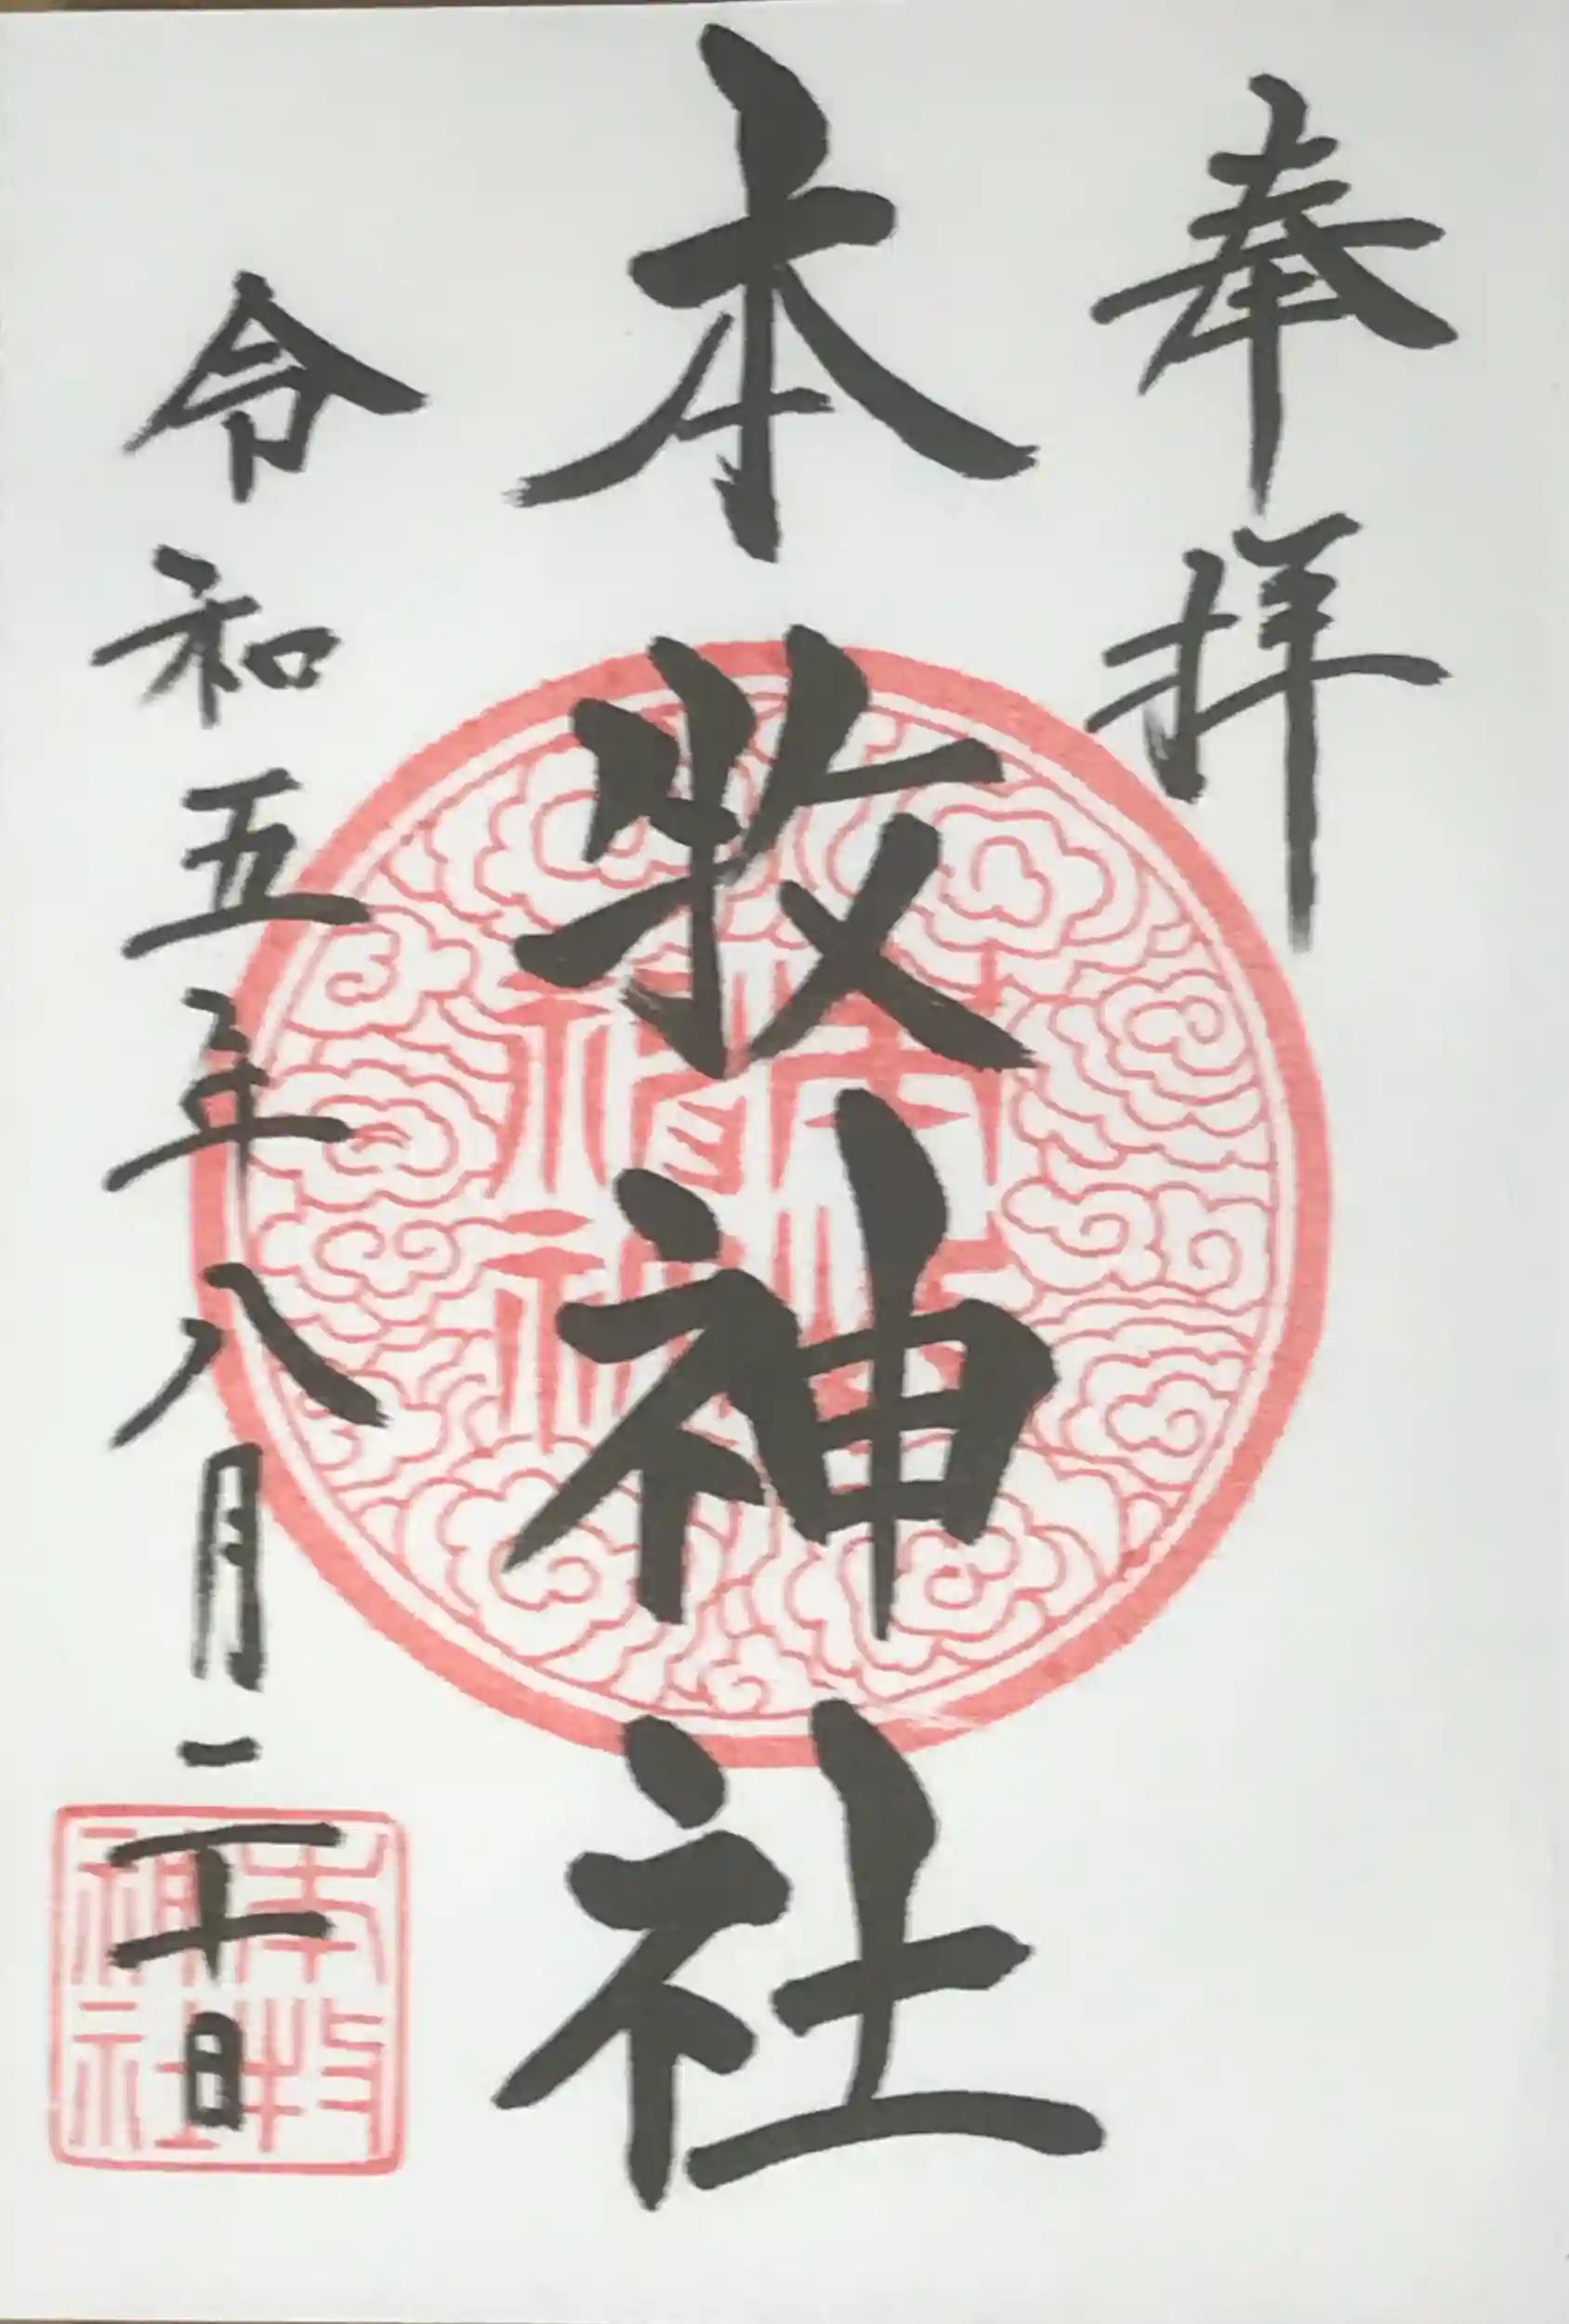 奉拝
本牧神社
令和五年八月二十日
本牧神社